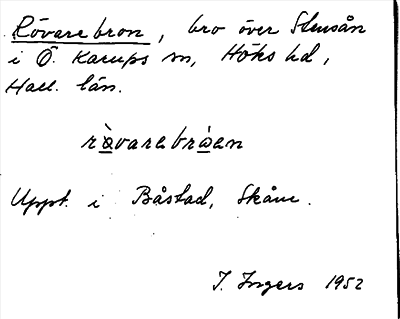 Rövarebron, bro över Stensån
i Ö. Karups sn, Höks hd,
Hall. län.
rövarebroen
Uppt. i Båstad, Skåne.
I. Ingers 1952